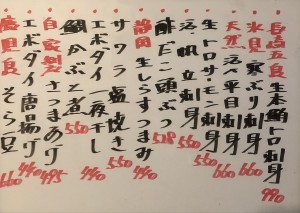 長崎五島 生本鮪トロ刺身 990
氷見 寒ぶり刺身 660
天然 活〆平目刺身 660
生トロサーモン刺身 550
活〆帆立刺身
酢だこ頭ぶつ 528
静岡 生しらすつまみ 440
サワラ塩焼き 550
エボダイ一夜干し 440
鯛かぶと煮 550
自家製 さつまあげ 495
エボダイ唐揚げ 440
鹿児島 そら豆 660